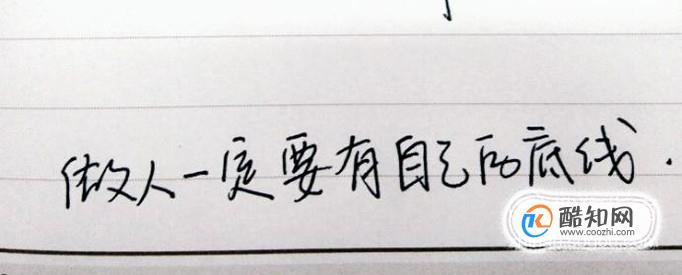 做人一定要有自己的底线.
酷知网
www.coozhi.com